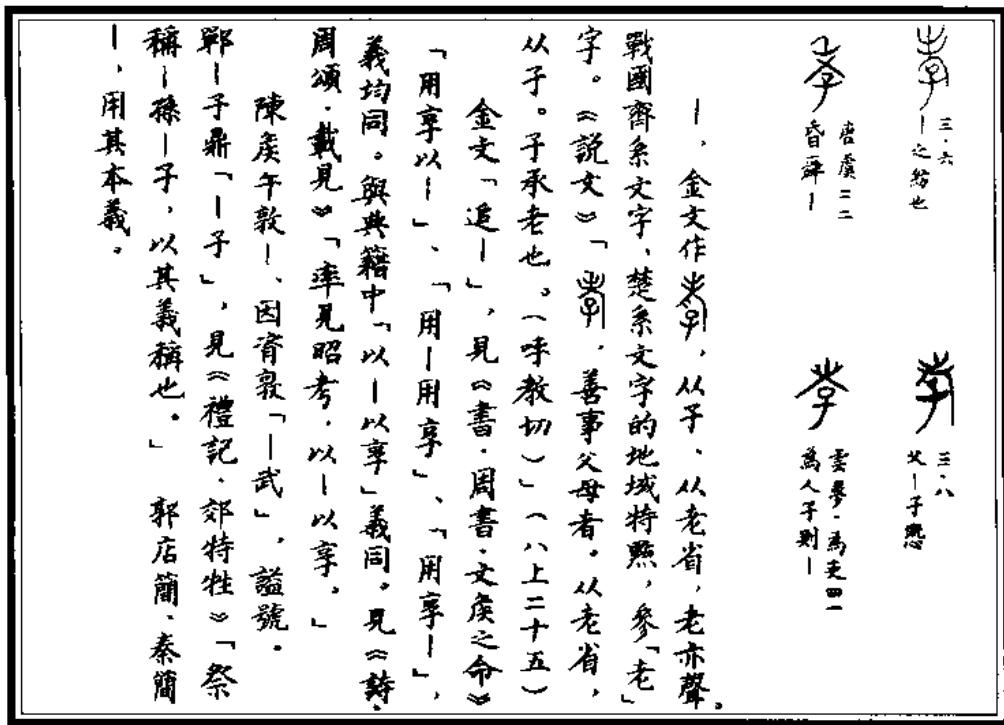 三·六
丨之紡也
三·八
父丨子悐
唐虞二二
昏辭丨
雲夢·為吏四一
為人子則丨
丨,金文作,从子、从老省,老亦聲。
戰國齊系文字、楚系文字的地域特點,參「老」
字。《說文》「,善事父母者。从老省,
从子。子承老也。(呼教切)」(八上二十五)
金文「追丨」,見《書·周書·文侯之命》
「用享以丨」、「用丨用享」、「用享丨」,
義均同。與典籍中「以丨以享」義同。見《詩·
周頌·載見》「率見昭考,以丨以享。」
陳侯午敦丨、因𦣞敦「丨武」,謚號。
鄲丨子鼎「丨子」,見《禮記·郊特牲》「祭
稱丨孫丨子,以其義稱也。」 郭店簡、秦簡
丨,用其本義。